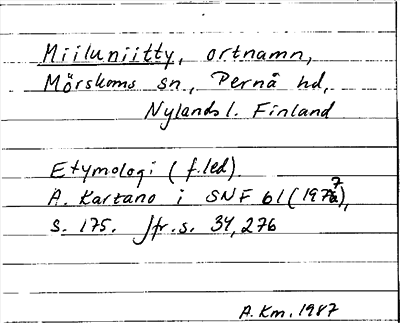 Miiluniitty, ortnamn,
Mörskoms sn, Pernå hd,
Nylands l. Finland
Etymologi (f.led).
A. Kartano i SNF 61 (1977),
s. 175. Jfr. s. 34, 276
A. Km. 1987